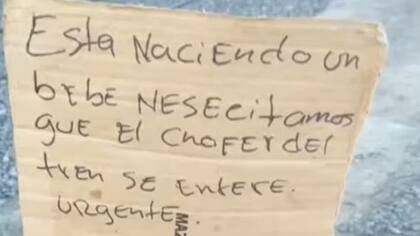 Esta Naciendo un
bebe NESECitamos
que El choFer del
tren SE ENtERE.
URgENtE.
MAZ